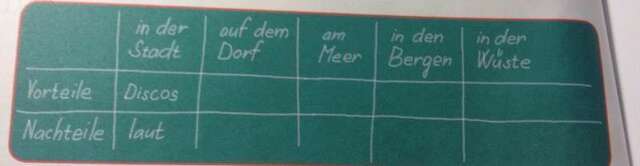 in der auf dem am in den in der
Stadt Dorf Meer Bergen Wüste
Vorteile Discos
Nachteile laut